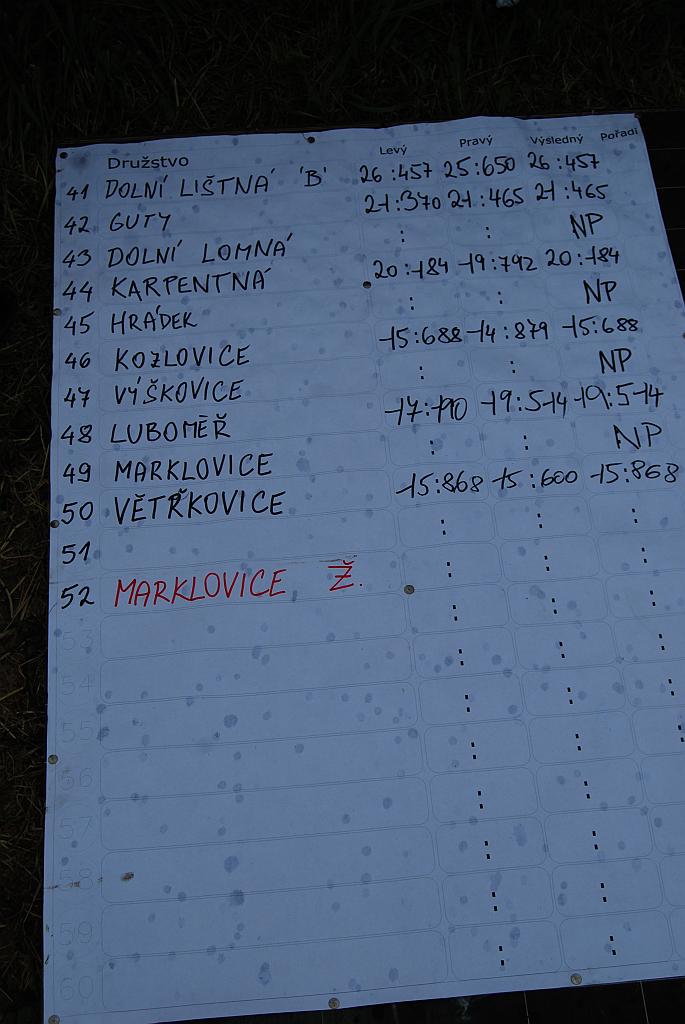 Družstvo Levý Pravý Výsledný Pořadí
41 DOLNÍ LIŠTNÁ 'B' 26:457 25:650 26:457
42 GUTY 21:370 21:465 21:465
43 DOLNÍ LOMNÁ : : NP
44 KARPENTNÁ 20:184 19:792 20:184
45 HRÁDEK : : NP
46 KOZLOVICE 15:688 14:879 15:688
47 VÝŠKOVICE : : NP
48 LUBOMĚŘ 17:190 19:514 19:514
49 MARKLOVICE : : NP
50 VĚTŘKOVICE 15:868 15:600 15:868
51 : : :
52 MARKLOVICE Ž. : : :
53 : : :
54 : : :
55 : : :
56 : : :
57 : : :
58 : :
59 : :
60 : :